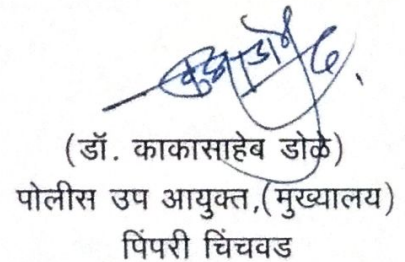 (डॉ. काकासाहेब डोळे)
पोलीस उप आयुक्त,(मुख्यालय)
पिंपरी चिंचवड